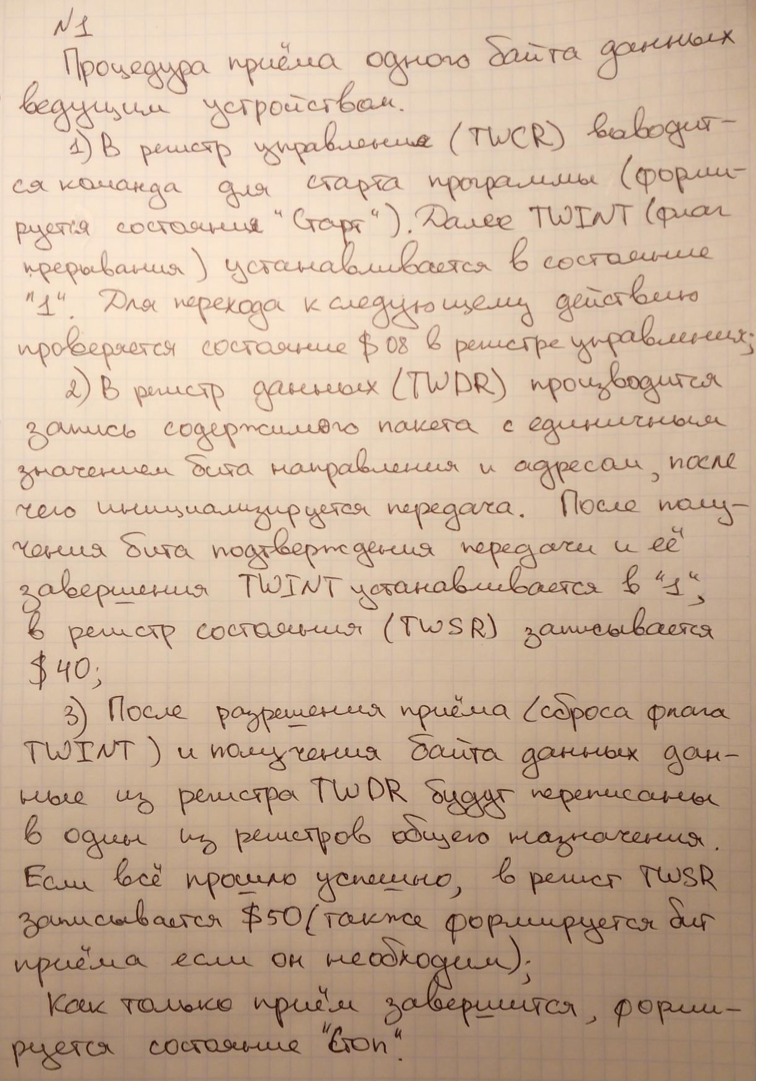 N1
Процедура приёма одного байта данных
ведущим устройством.
1) В регистр управления (TWCR) выводит-
ся команда для старта программы (форми-
руется состояния "Старт"). Далее TWINT (флаг
прерывания) устанавливается в состояние
"1". Для перехода к следующему действию
проверяется состояние $08 в регистре управления;
2) В регистр данных (TWDR) производится
запись содержимого пакета с единичным
значением бита направления и адресом, после
чего инициализируется передача. После полу-
чения бита подтверждения передачи и её
завершения TWINT устанавливается в "1",
в регистр состояния (TWSR) записывается
$40;
3) После разрешения приёма (сброса флага
TWINT) и получения байта данных дан-
ные из регистра TWDR будут переписаны
в один из регистров общего назначения.
Если всё прошло успешно, в регист TWSR
записывается $50 (также формируется бит
приёма если он необходим);
Как только приём завершится, форми-
руется состояние "Стоп".